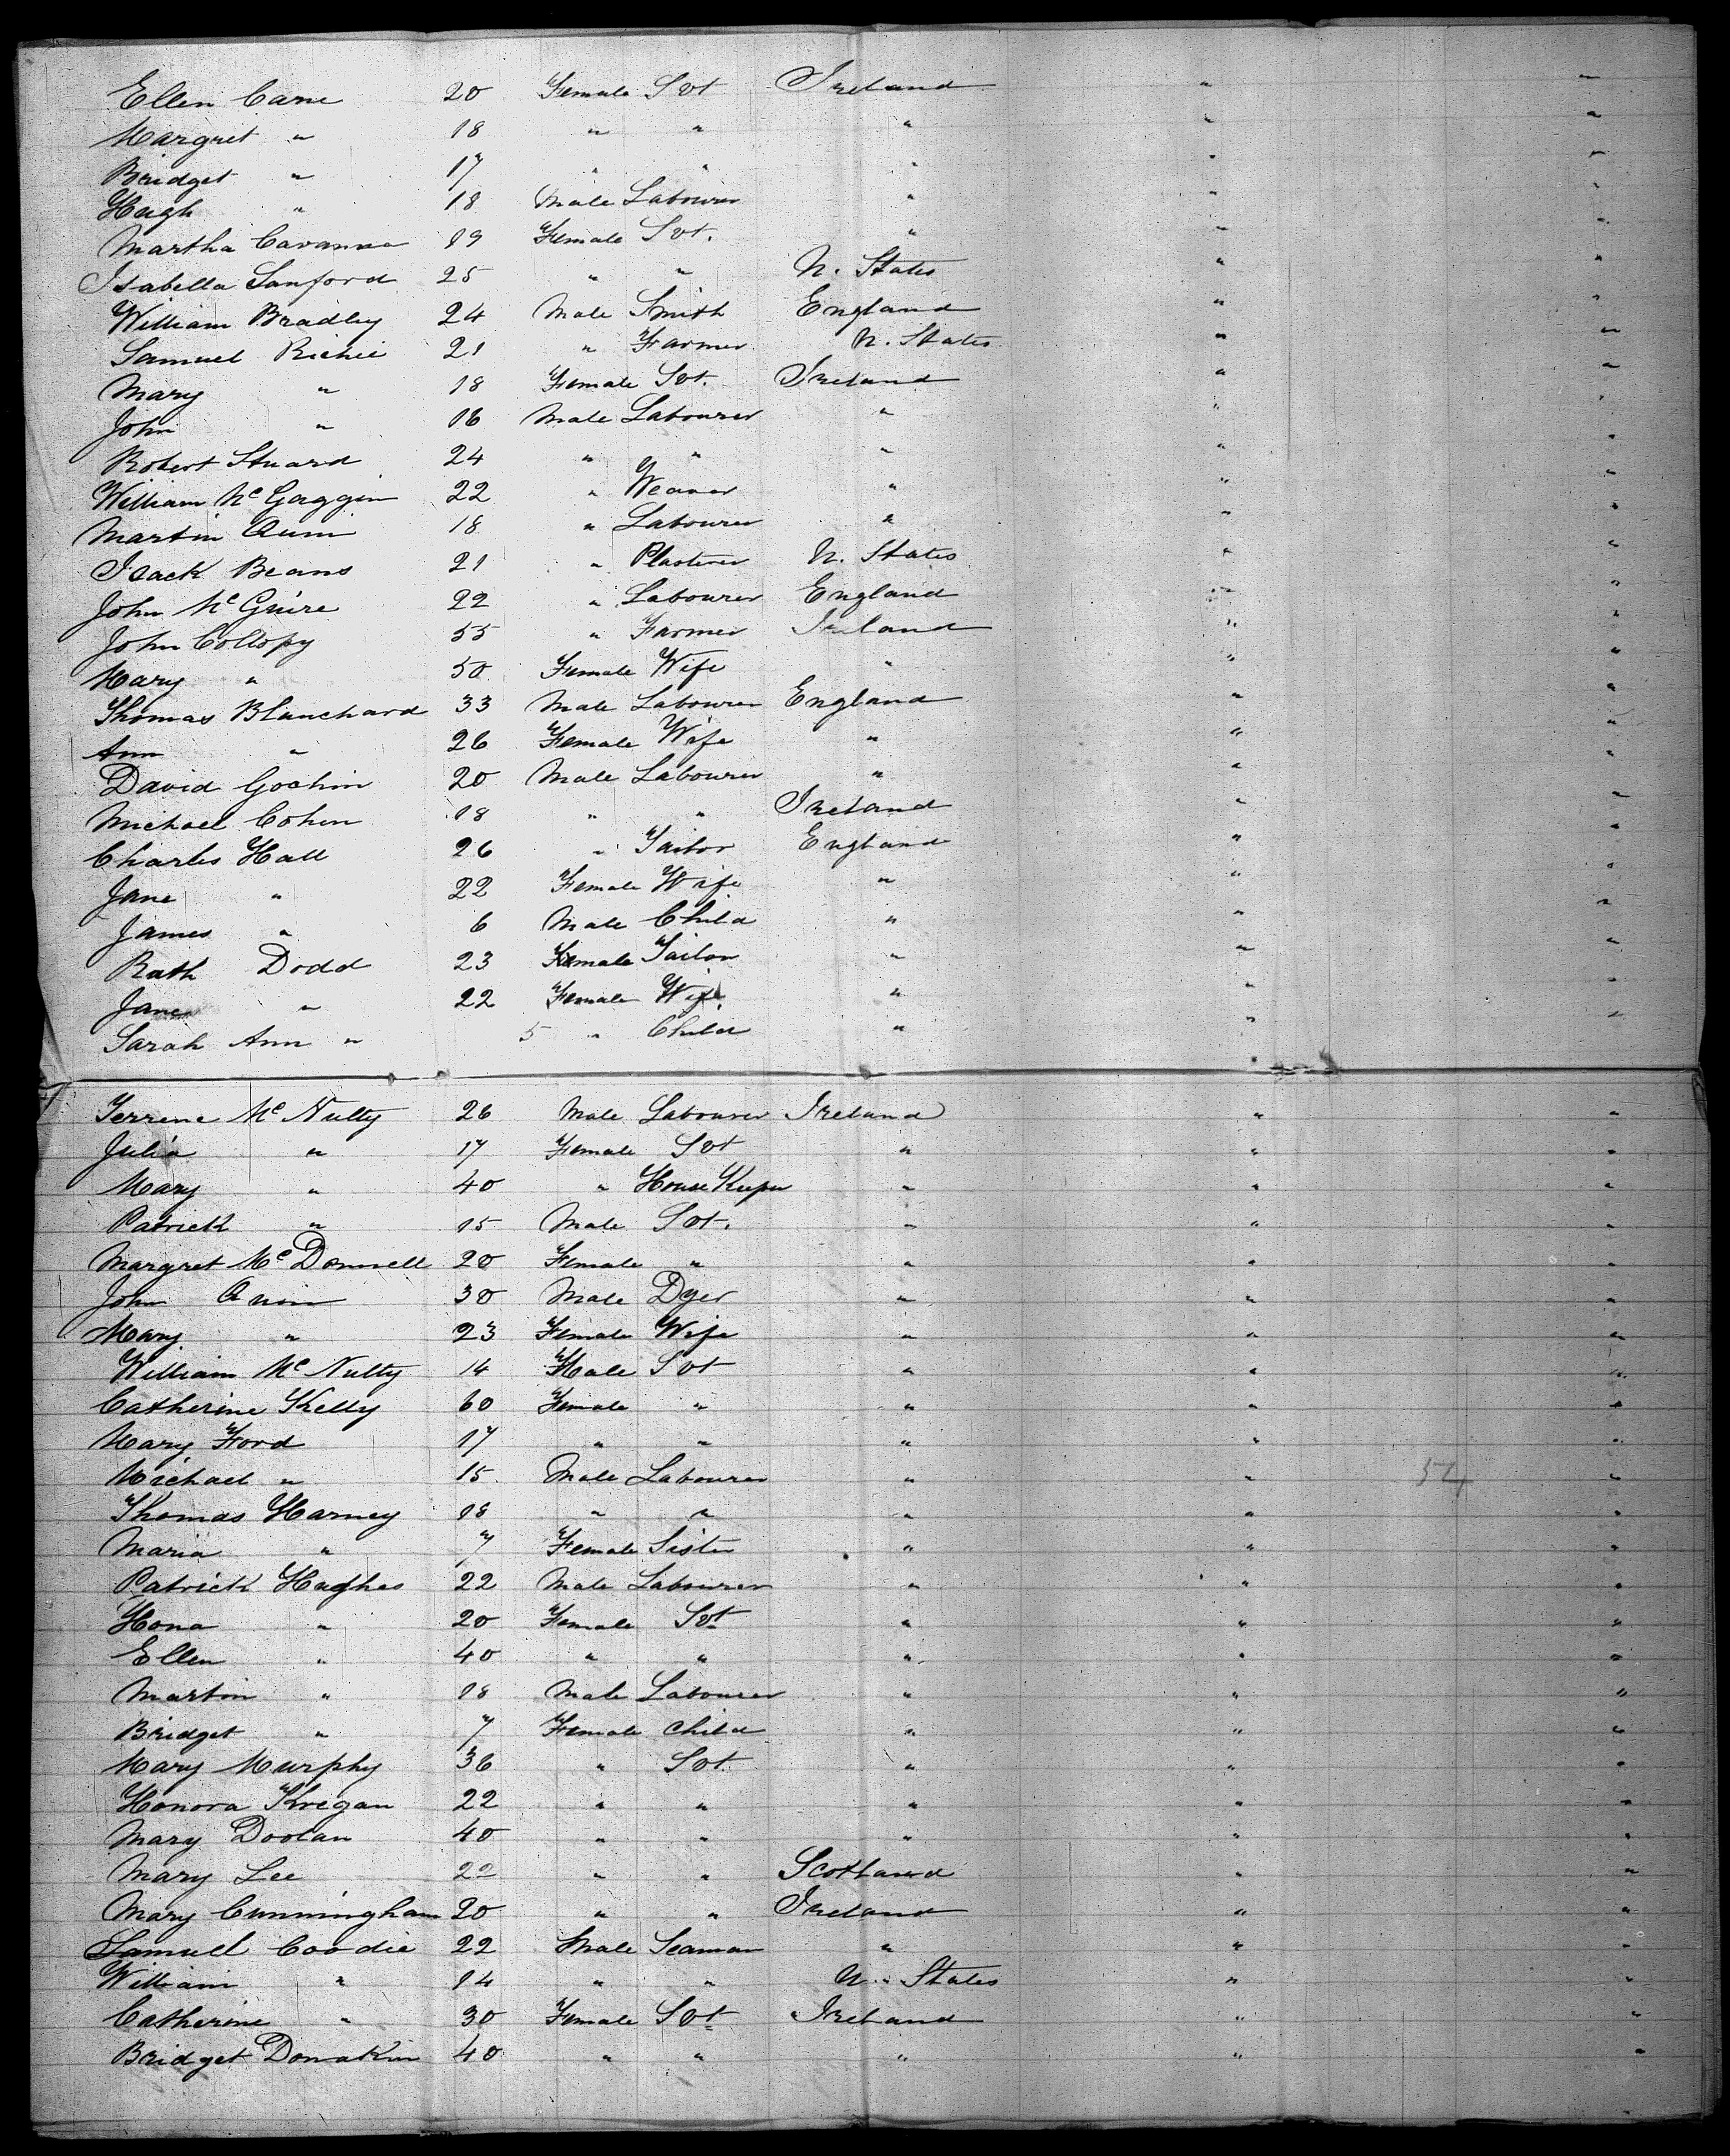 Ellen Cane 20 Female Svt Ireland " "
Margret " 18 " " " " "
Bridget " 17 " " " " "
Hugh " 18 Male Labourer " " "
Martha Cavanna 19 Female Svt. " " "
Isabella Sanford 25 " " U. States " "
William Bradley 24 Male Smith England " "
Samuel Richie 21 " Farmer U. States " "
Mary " 18 Female Svt. Ireland " "
John " 16 Male Labourer " " "
Robert Stuard 24 " " " " "
William McGaggin 22 " Weaver " " "
Martin Quin 18 " Labourer " " "
Isack Beans 21 " Plasterer U. States " "
John McGuire 22 " Labourer England " "
John Collopy 55 " Farmer Ireland " "
Mary " 50 Female Wife " " "
Thomas Blanchard 33 Male Labourer England " "
Ann " 26 Female Wife " " "
David Gochin 20 Male Labourer " " "
Michael Cohen 18 " " Ireland " "
Charles Hall 26 " Tailor England " "
Jane " 22 Female Wife " " "
James " 6 Male Child " " "
Ruth Dodd 23 Female Tailor " " "
Jane " 22 Female Wife " " "
Sarah Ann " 5 " Child " " "
Terrene McNulty 26 Male Labourer Ireland " "
Julia " 17 Female Svt " " "
Mary " 40 " House Keeper " " "
Patrick " 15 Male Svt. " " "
Margret McDonnell 20 Female " " " "
John Quin 30 Male Dyer " " "
Mary " 23 Female Wife " " "
William McNulty 14 Male Svt " " "
Catherine Kelly 60 Female " " " "
Mary Ford 17 " " " " "
Michael " 15 Male Labourer " " 54 "
Thomas Harney 18 " " " " "
Maria " 7 Female Sister " " "
Patrick Hughes 22 Male Labourer " " "
Hona " 20 Female Svt " " "
Ellen " 40 " " " " "
Martin " 18 Male Labourer " " "
Bridget " 7 Female Child " " "
Mary Murphy 36 " Svt " " "
Honora Kregan 22 " " " " "
Mary Doolan 40 " " " " "
Mary Lee 22 " " Scotland " "
Mary Cunningham 20 " " Ireland " "
Samuel Coodie 22 Male Seaman " " "
William " 14 " " U. States " "
Catherine " 30 Female Svt Ireland " "
Bridget Donakin 40 " " " " "